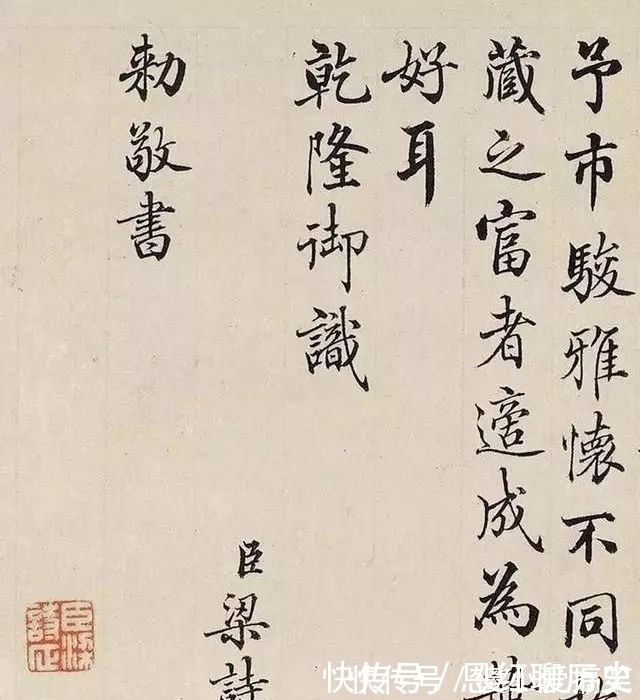 予市駿雅懷不同
蔵之富者適成為
好耳
乾隆御識
臣梁詩
勑敬書
臣梁詩正
快传号/